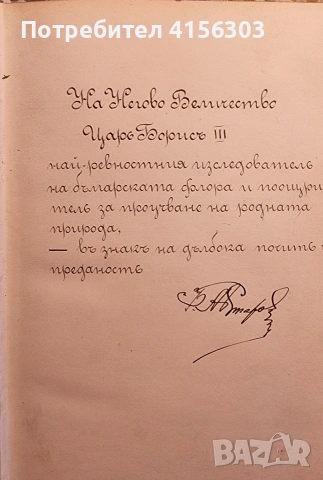 Потребител 4156303
На Негово Величество
Царь Борисъ III
най-ревностния изследователь
на българската флора и поощри
тель за проучване на родната
природа,
— въ знакъ на дълбока почить и
преданость
BAZAR
bazar.bg